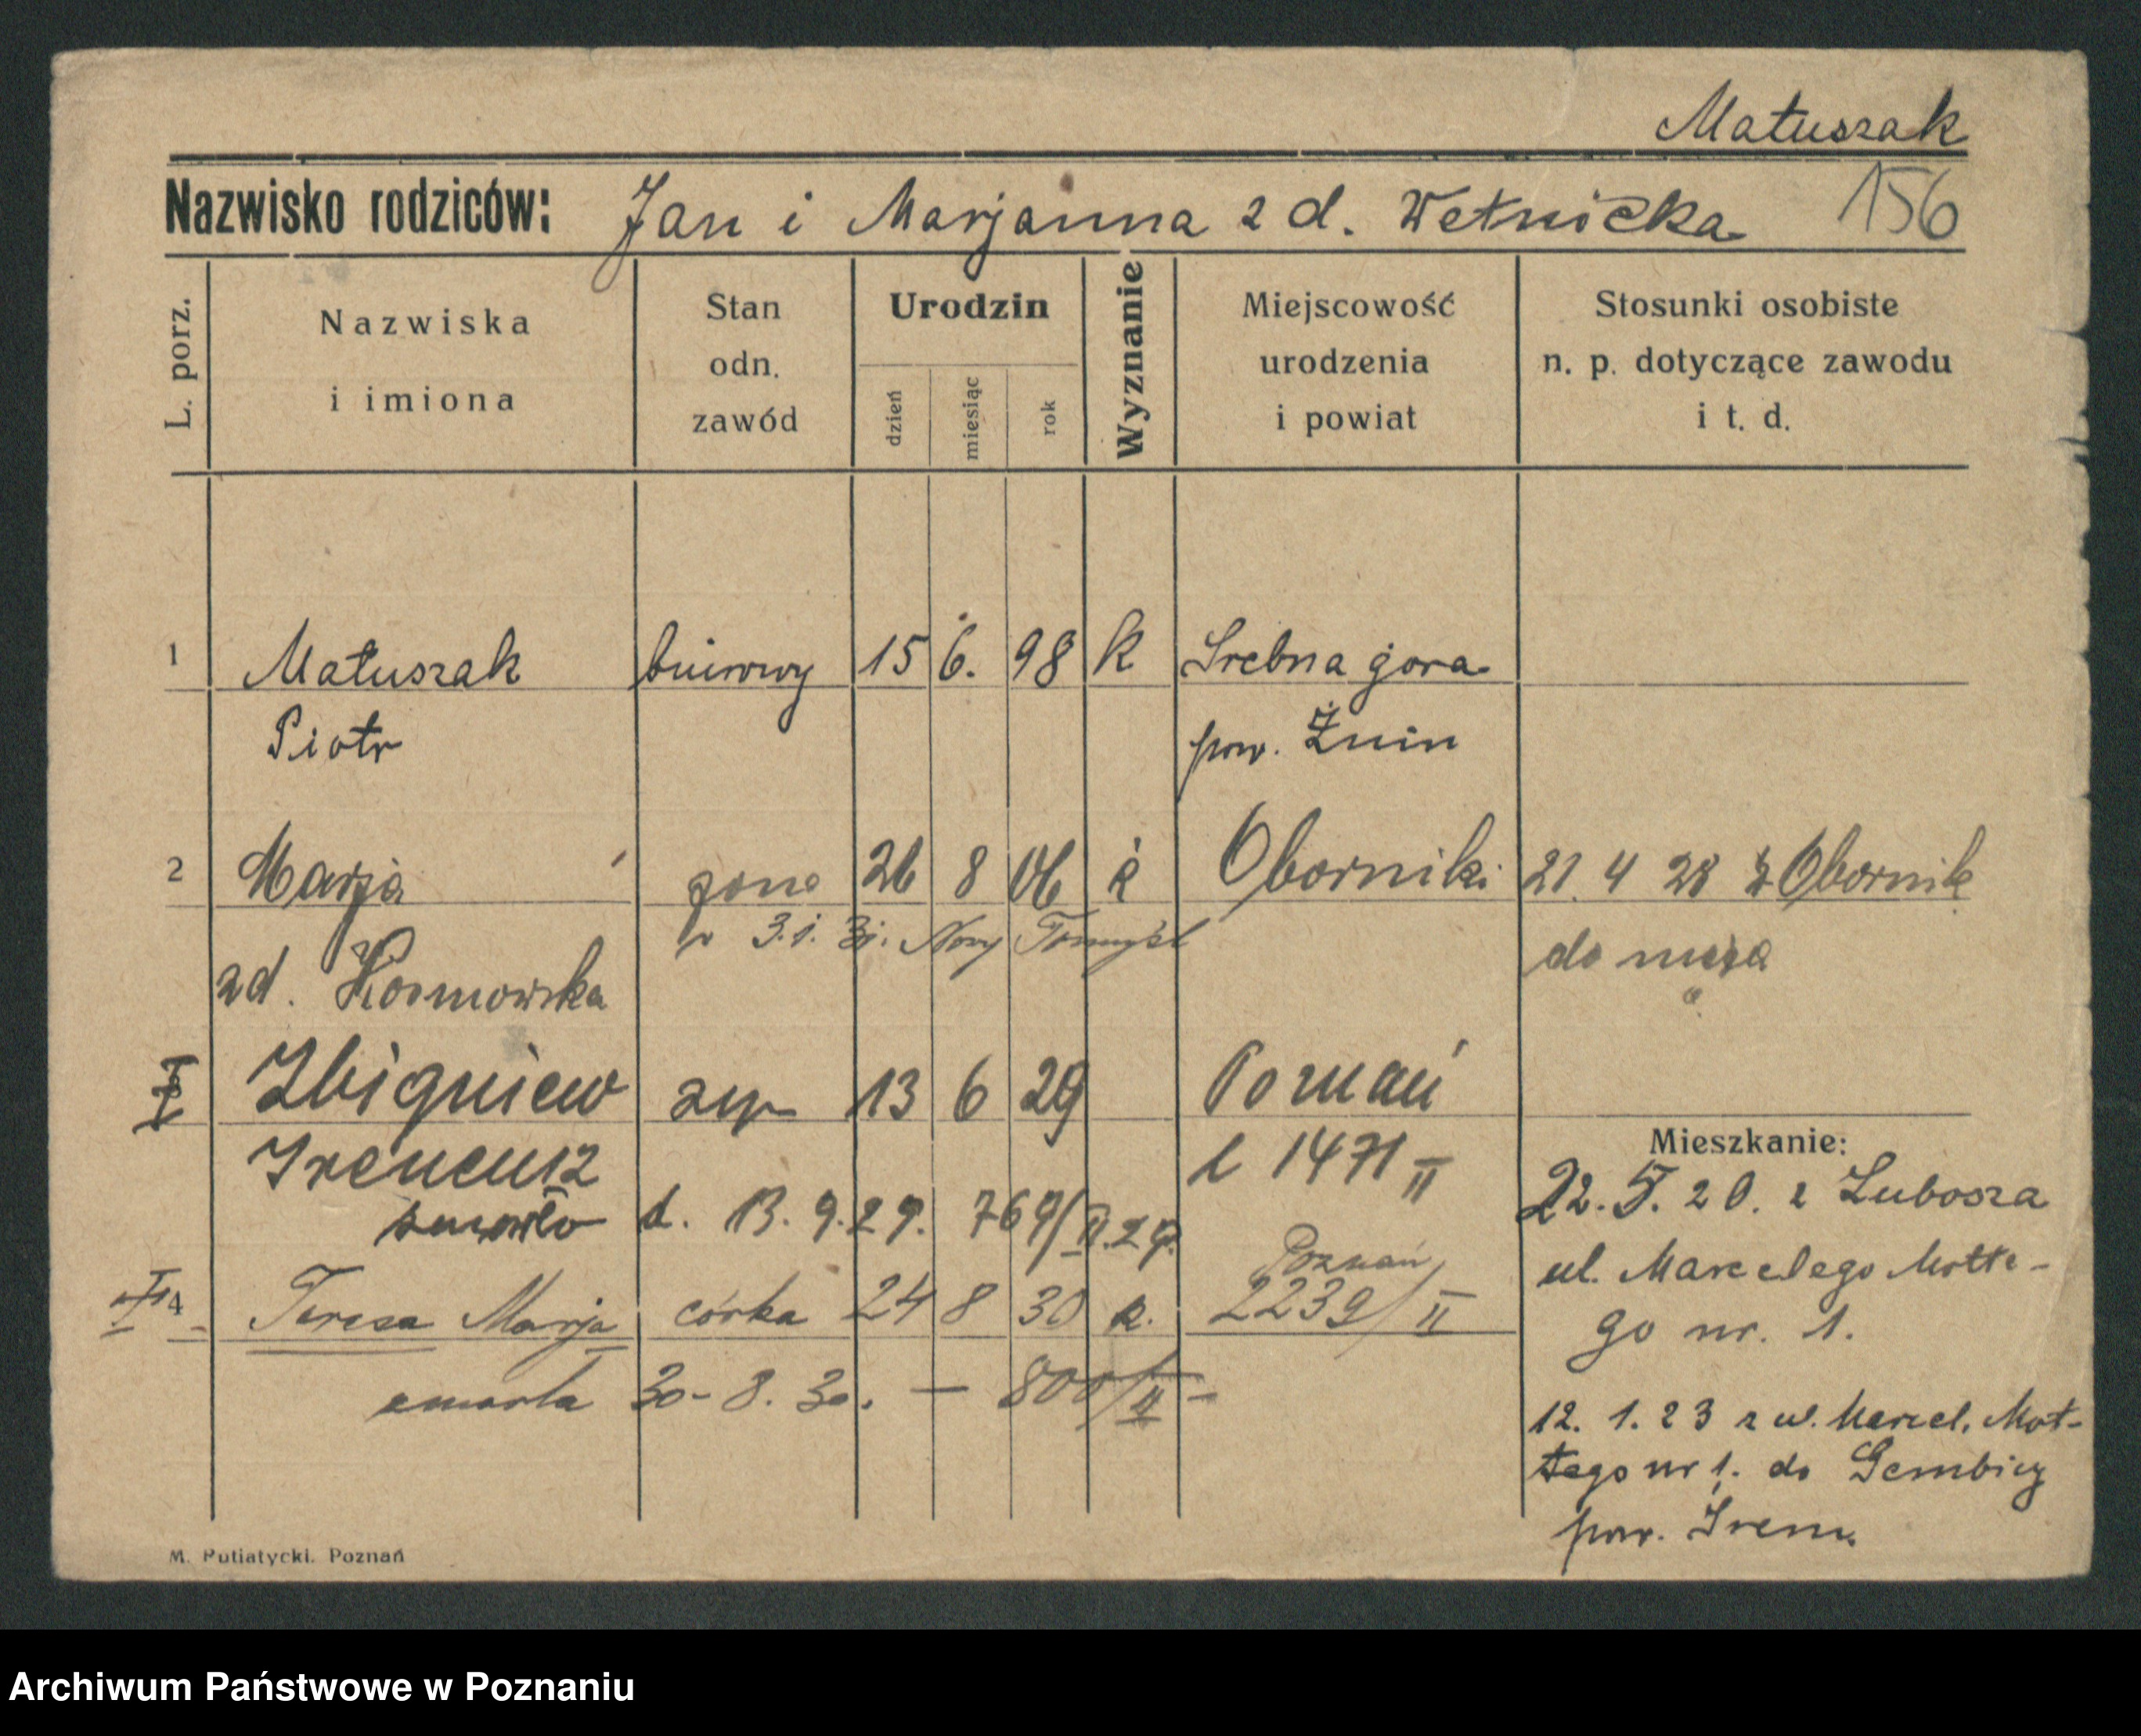 Matuszak
Nazwisko rodziców: Jan i Marjanna z d. Wetnicka 156
L. porz.
Nazwiska i imiona
Stan odn. zawód
Urodzin
dzień miesiąc rok
Wyznanie
Miejscowość urodzenia i powiat
Stosunki osobiste n. p. dotyczące zawodu i t. d.
1 Matuszak biurowy 15 6. 98 k Srebna gora
Piotr pow. Żnin
2 Marja żona 26 8 06 k Oborniki 21 4 28 z Obornik
w 3.1. 31. Nowy Tomyśl
do męża
zd. Kosmowska
I Zbigniew syn 13 6 29 Poznań
Mieszkanie:
Ireneusz L 1471 II
22. 5. 20. z Lubosza
zmarło d. 13. 9. 29. 769/II.29.
ul. Marcelego Motte-
Poznań
4 Teresa Marja córka 24 8 30 k. 2239/II
go nr. 1.
zmarła 30-8. 30. — 800/II —
12. 1. 23 z ul. Marcel. Mot-
tego nr 1. do Gembicy
pow. Śrem.
M. Putiatycki. Poznań
Archiwum Państwowe w Poznaniu